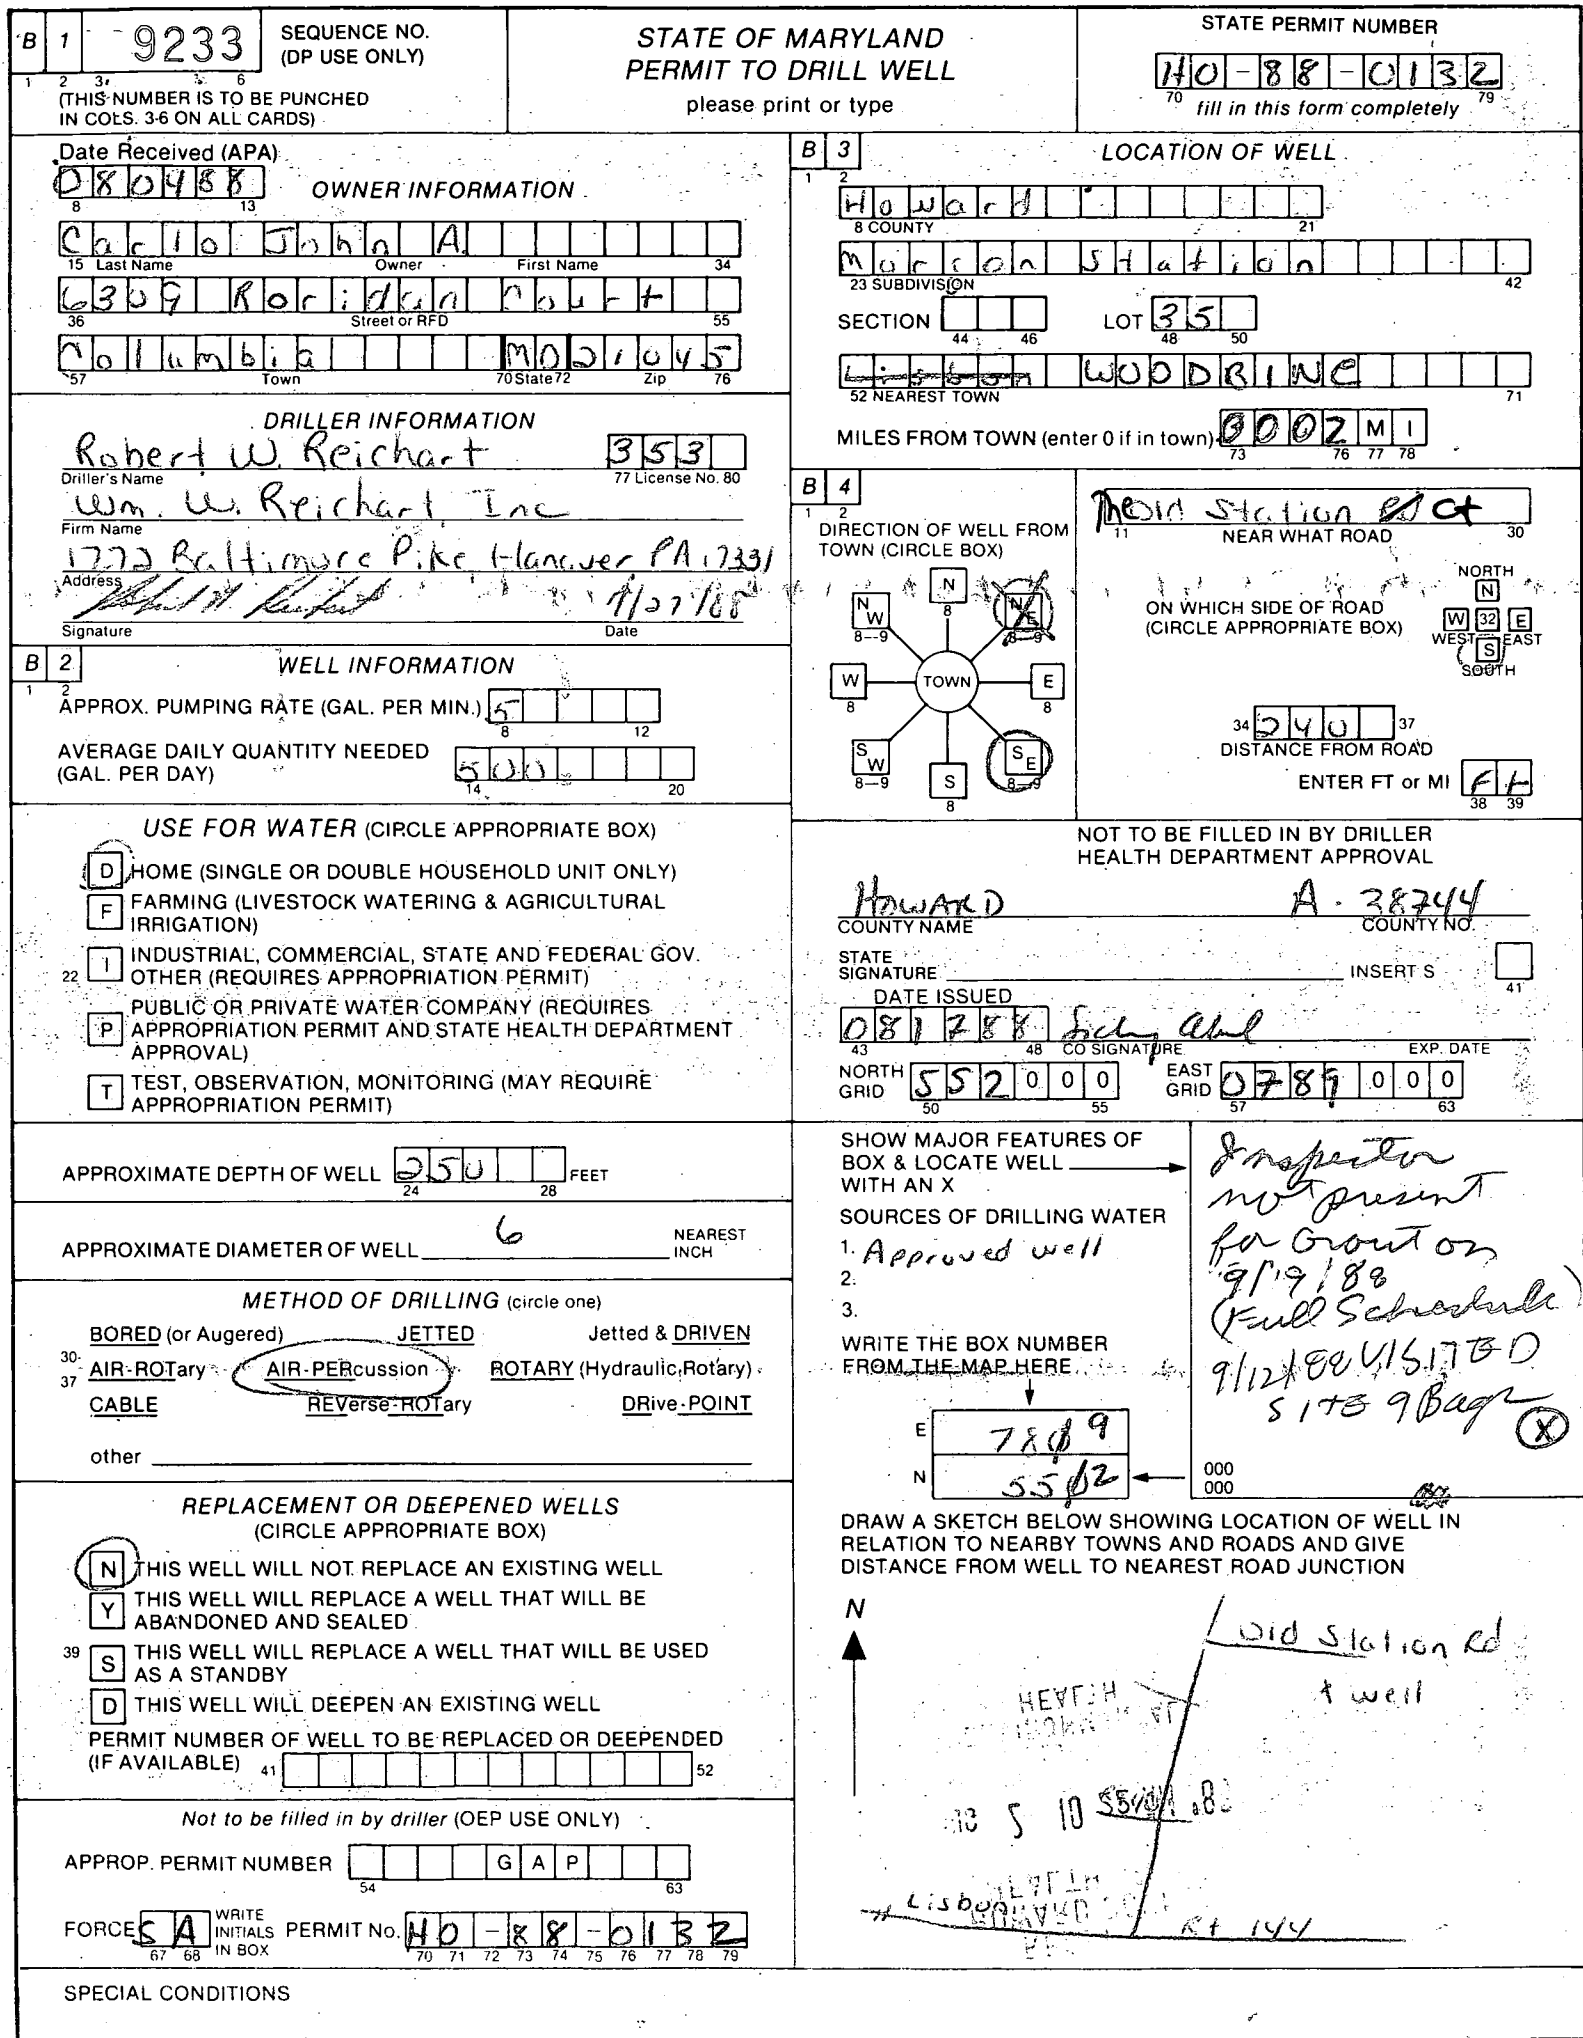 B 1 9233 SEQUENCE NO.
(DP USE ONLY)
1 2 3 6
(THIS NUMBER IS TO BE PUNCHED
IN COLS. 3-6 ON ALL CARDS)
STATE OF MARYLAND
PERMIT TO DRILL WELL
please print or type
STATE PERMIT NUMBER
HO-88-0132
70 79
fill in this form completely
Date Received (APA)
080488
8 13
OWNER INFORMATION
Carlo John A.
15 Last Name Owner First Name 34
6309 Roridan Court
36 Street or RFD 55
Columbia MD 21045
57 Town 70 State 72 Zip 76
DRILLER INFORMATION
Robert W. Reichart 353
Driller's Name 77 License No. 80
Wm. W. Reichart Inc
Firm Name
1772 Baltimore Pike Hanover PA 17331
Address
7/27/88
Signature Date
B 2 WELL INFORMATION
1 2
APPROX. PUMPING RATE (GAL. PER MIN.) 5
8 12
AVERAGE DAILY QUANTITY NEEDED
(GAL. PER DAY) 500
14 20
USE FOR WATER (CIRCLE APPROPRIATE BOX)
D HOME (SINGLE OR DOUBLE HOUSEHOLD UNIT ONLY)
F FARMING (LIVESTOCK WATERING & AGRICULTURAL
IRRIGATION)
22 I INDUSTRIAL, COMMERCIAL, STATE AND FEDERAL GOV.
OTHER (REQUIRES APPROPRIATION PERMIT)
P PUBLIC OR PRIVATE WATER COMPANY (REQUIRES
APPROPRIATION PERMIT AND STATE HEALTH DEPARTMENT
APPROVAL)
T TEST, OBSERVATION, MONITORING (MAY REQUIRE
APPROPRIATION PERMIT)
APPROXIMATE DEPTH OF WELL 250 FEET
24 28
APPROXIMATE DIAMETER OF WELL 6 NEAREST
INCH
METHOD OF DRILLING (circle one)
BORED (or Augered) JETTED Jetted & DRIVEN
30-37 AIR-ROTary AIR-PERcussion ROTARY (Hydraulic Rotary)
CABLE REVerse-ROTary DRive-POINT
other
REPLACEMENT OR DEEPENED WELLS
(CIRCLE APPROPRIATE BOX)
N THIS WELL WILL NOT REPLACE AN EXISTING WELL
Y THIS WELL WILL REPLACE A WELL THAT WILL BE
ABANDONED AND SEALED
39 S THIS WELL WILL REPLACE A WELL THAT WILL BE USED
AS A STANDBY
D THIS WELL WILL DEEPEN AN EXISTING WELL
PERMIT NUMBER OF WELL TO BE REPLACED OR DEEPENDED
(IF AVAILABLE) 41 52
Not to be filled in by driller (OEP USE ONLY)
APPROP. PERMIT NUMBER G A P
54 63
FORCE SA WRITE
INITIALS
IN BOX PERMIT No. HO-88-0132
67 68 70 71 72 73 74 75 76 77 78 79
SPECIAL CONDITIONS
B 3 LOCATION OF WELL
1 2
Howard
8 COUNTY 21
Morcon Station
23 SUBDIVISION 42
SECTION LOT 35
44 46 48 50
Lisbon WOODBINE
52 NEAREST TOWN 71
MILES FROM TOWN (enter 0 if in town) 0002 MI
73 76 77 78
B 4
1 2
DIRECTION OF WELL FROM
TOWN (CIRCLE BOX)
N 8
NW 8-9
NE 8-9
W 8
TOWN
E 8
SW 8-9
S 8
SE 8-9
Old Station Rd Ct
11 NEAR WHAT ROAD 30
ON WHICH SIDE OF ROAD
(CIRCLE APPROPRIATE BOX)
NORTH
N
W 32 E
WEST EAST
S
SOUTH
34 240 37
DISTANCE FROM ROAD
ENTER FT or MI Ft
38 39
NOT TO BE FILLED IN BY DRILLER
HEALTH DEPARTMENT APPROVAL
HOWARD A-38744
COUNTY NAME COUNTY NO.
STATE
SIGNATURE INSERT S
41
DATE ISSUED
081788
43 48 CO SIGNATURE EXP. DATE
NORTH
GRID 552000
50 55
EAST
GRID 0789000
57 63
SHOW MAJOR FEATURES OF
BOX & LOCATE WELL
WITH AN X
SOURCES OF DRILLING WATER
1. Approved well
2.
3.
WRITE THE BOX NUMBER
FROM THE MAP HERE
E 789
N 552
000
000
Inspector
not present
for Grout on
9/19/88
(Full Schedule)
9/12/88 VISITED
SITE 9 Bags
X
DRAW A SKETCH BELOW SHOWING LOCATION OF WELL IN
RELATION TO NEARBY TOWNS AND ROADS AND GIVE
DISTANCE FROM WELL TO NEAREST ROAD JUNCTION
N
Old Station Rd
well
HEALTH
Lisbon
Rt 144